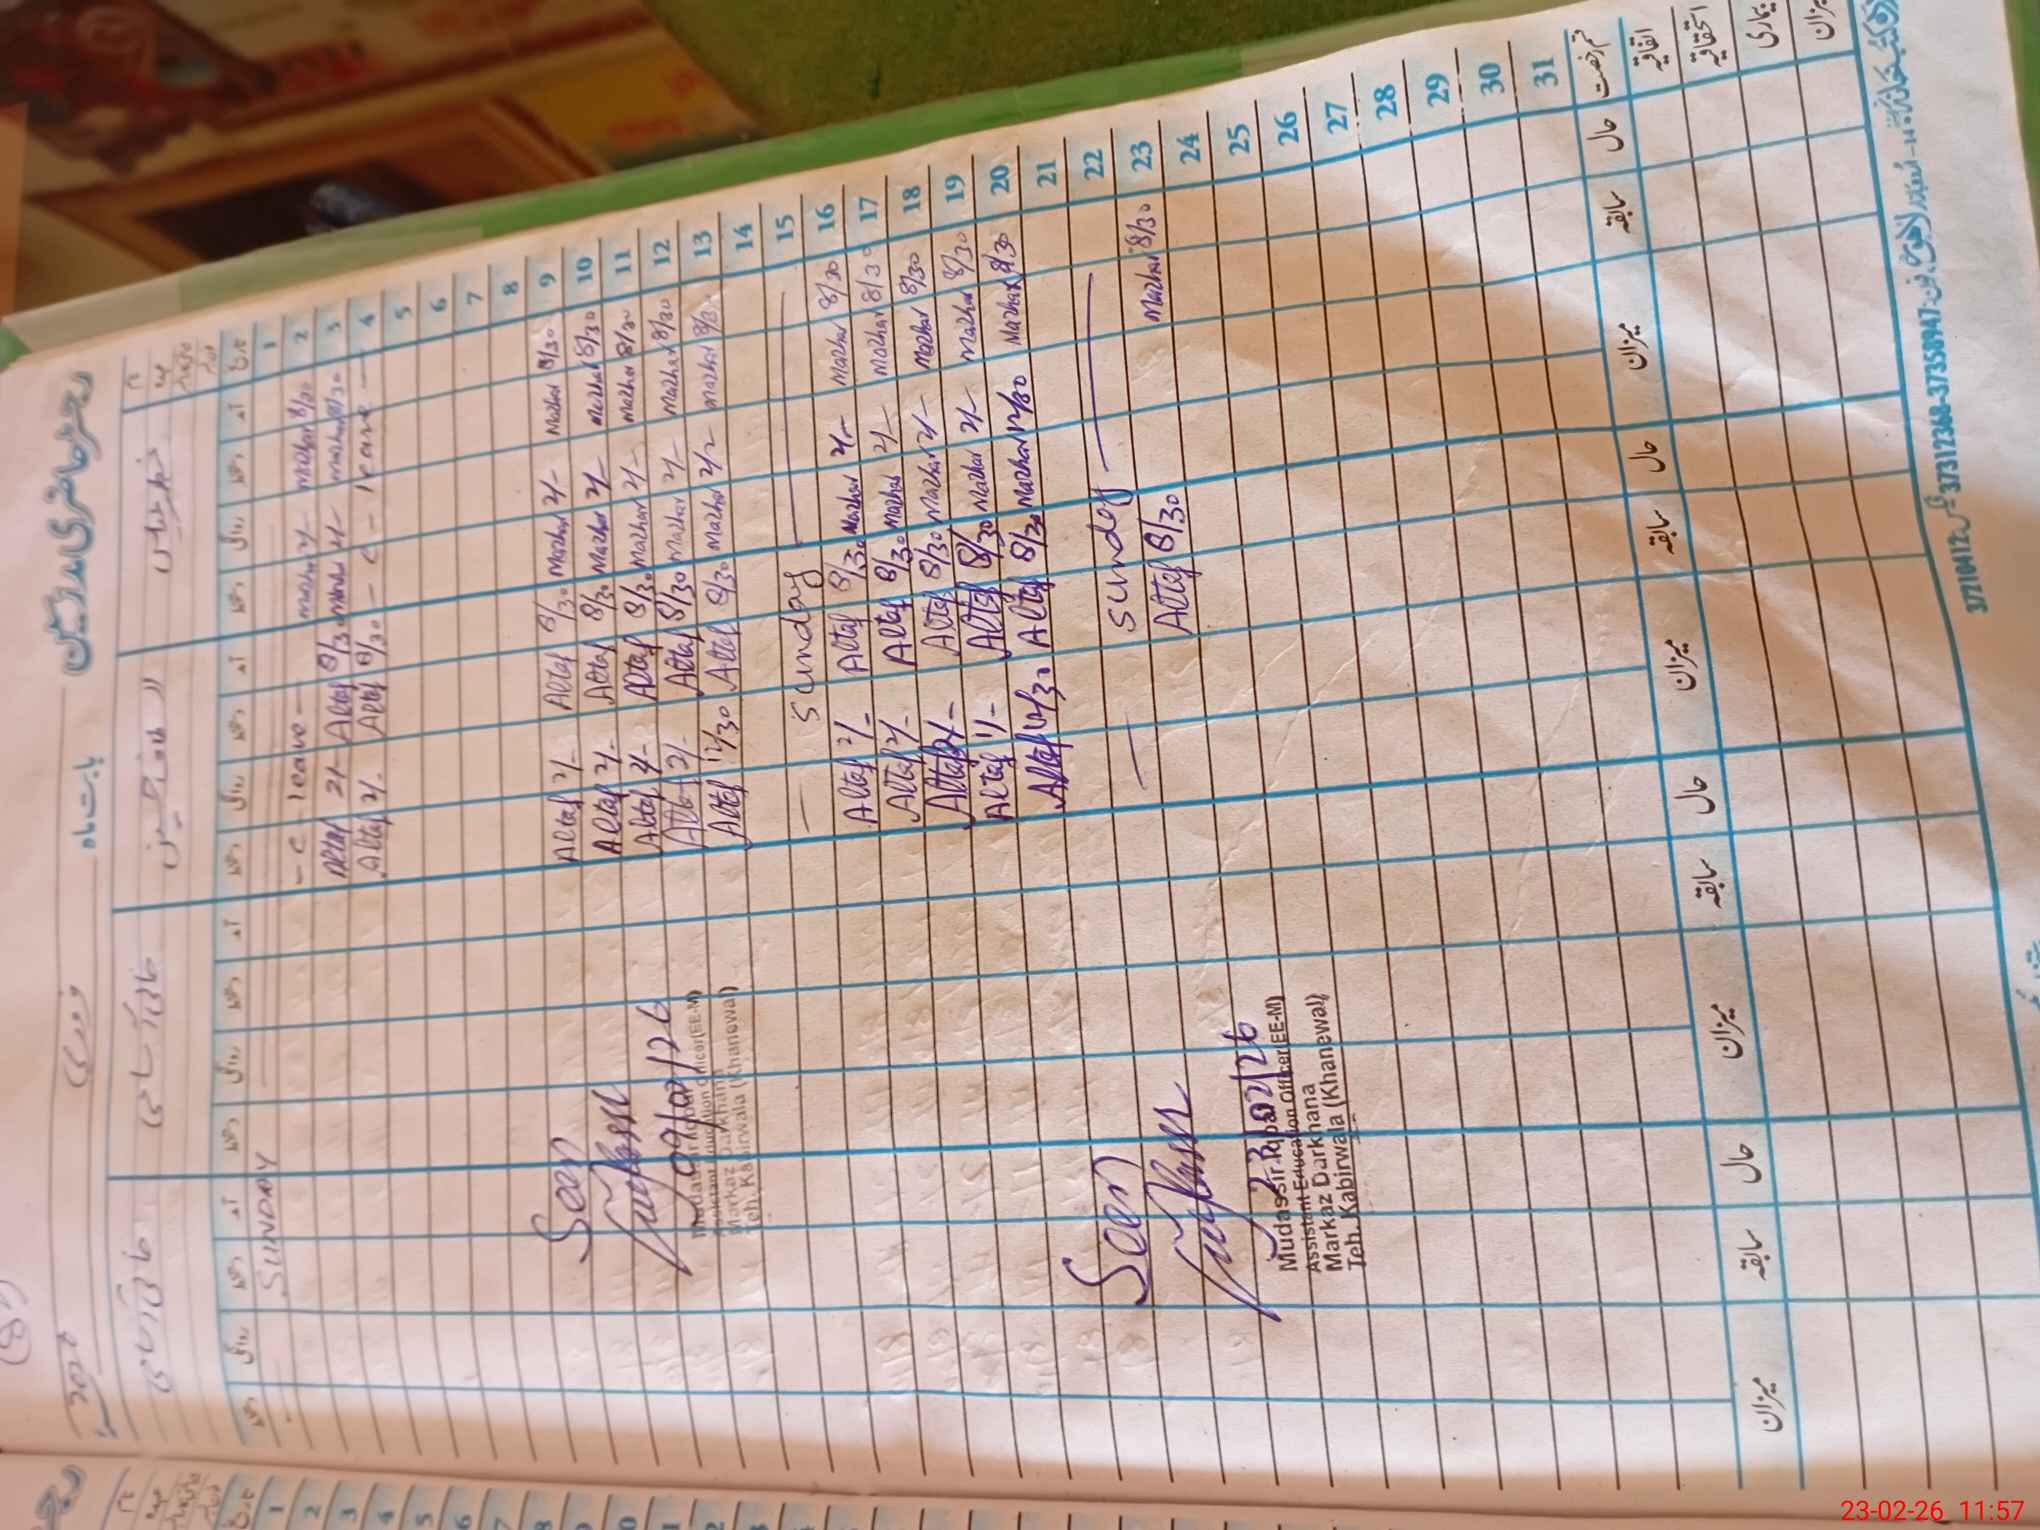 رجسٹر حاضری مدرسین
بابت ماہ فروری
نام
عہدہ
تاریخ آمد دستخط روانگی دستخط آمد دستخط روانگی دستخط آمد دستخط روانگی دستخط آمد دستخط روانگی دستخط
1 SUNDAY
2 Mazhar 8/30 Mazhar 2/- - C - leave -
3 Mazhar 8/30 Mazhar 2/- Altaf 8/30 Altaf 2/-
4 - C - leave - Altaf 8/30 Altaf 2/-
5
6
7
8
9 Mazhar 8/30 Mazhar 2/- Altaf 8/30 Altaf 2/- Seen
10 Mazhar 8/30 Mazhar 2/- Altaf 8/30 Altaf 2/-
11 Mazhar 8/30 Mazhar 2/- Altaf 8/30 Altaf 2/-
12 Mazhar 8/30 Mazhar 2/- Altaf 8/30 Altaf 2/-
13 Mazhar 8/30 Mazhar 2/- Altaf 8/30 Altaf
09/02/26
Assistant Education Officer (EE-M)
Markaz Darkhana
Teh. Kabirwala (Khanewal)
14
15 Sunday
16 Mazhar 8/30 Mazhar 2/- Altaf 8/30 Altaf 2/-
17 Mazhar 8/30 Mazhar 2/- Altaf 8/30 Altaf 2/-
18 Mazhar 8/30 Mazhar 2/- Altaf 8/30 Altaf 2/-
19 Mazhar 8/30 Mazhar 2/- Altaf 8/30 Altaf
20 Mazhar 8/30 Mazhar 12/30 Altaf 8/30 Altaf 12/30
21
22 Sunday
23 Mazhar 8/30 Altaf 8/30 Seen
24
25
26
27
28
29
30
31
23/02/26
Mudassir Iqbal
Assistant Education Officer (EE-M)
Markaz Darkhana
Teh. Kabirwala (Khanewal)
قسم رخصت حال سابقہ میزان حال سابقہ میزان حال سابقہ میزان حال سابقہ میزان
اتفاقیہ
استحقاقیہ
بیماری
میزان
37210412 37312368-37358947
رجسٹر
1
2
3
4
5
6
7
8
23-02-26 11:57